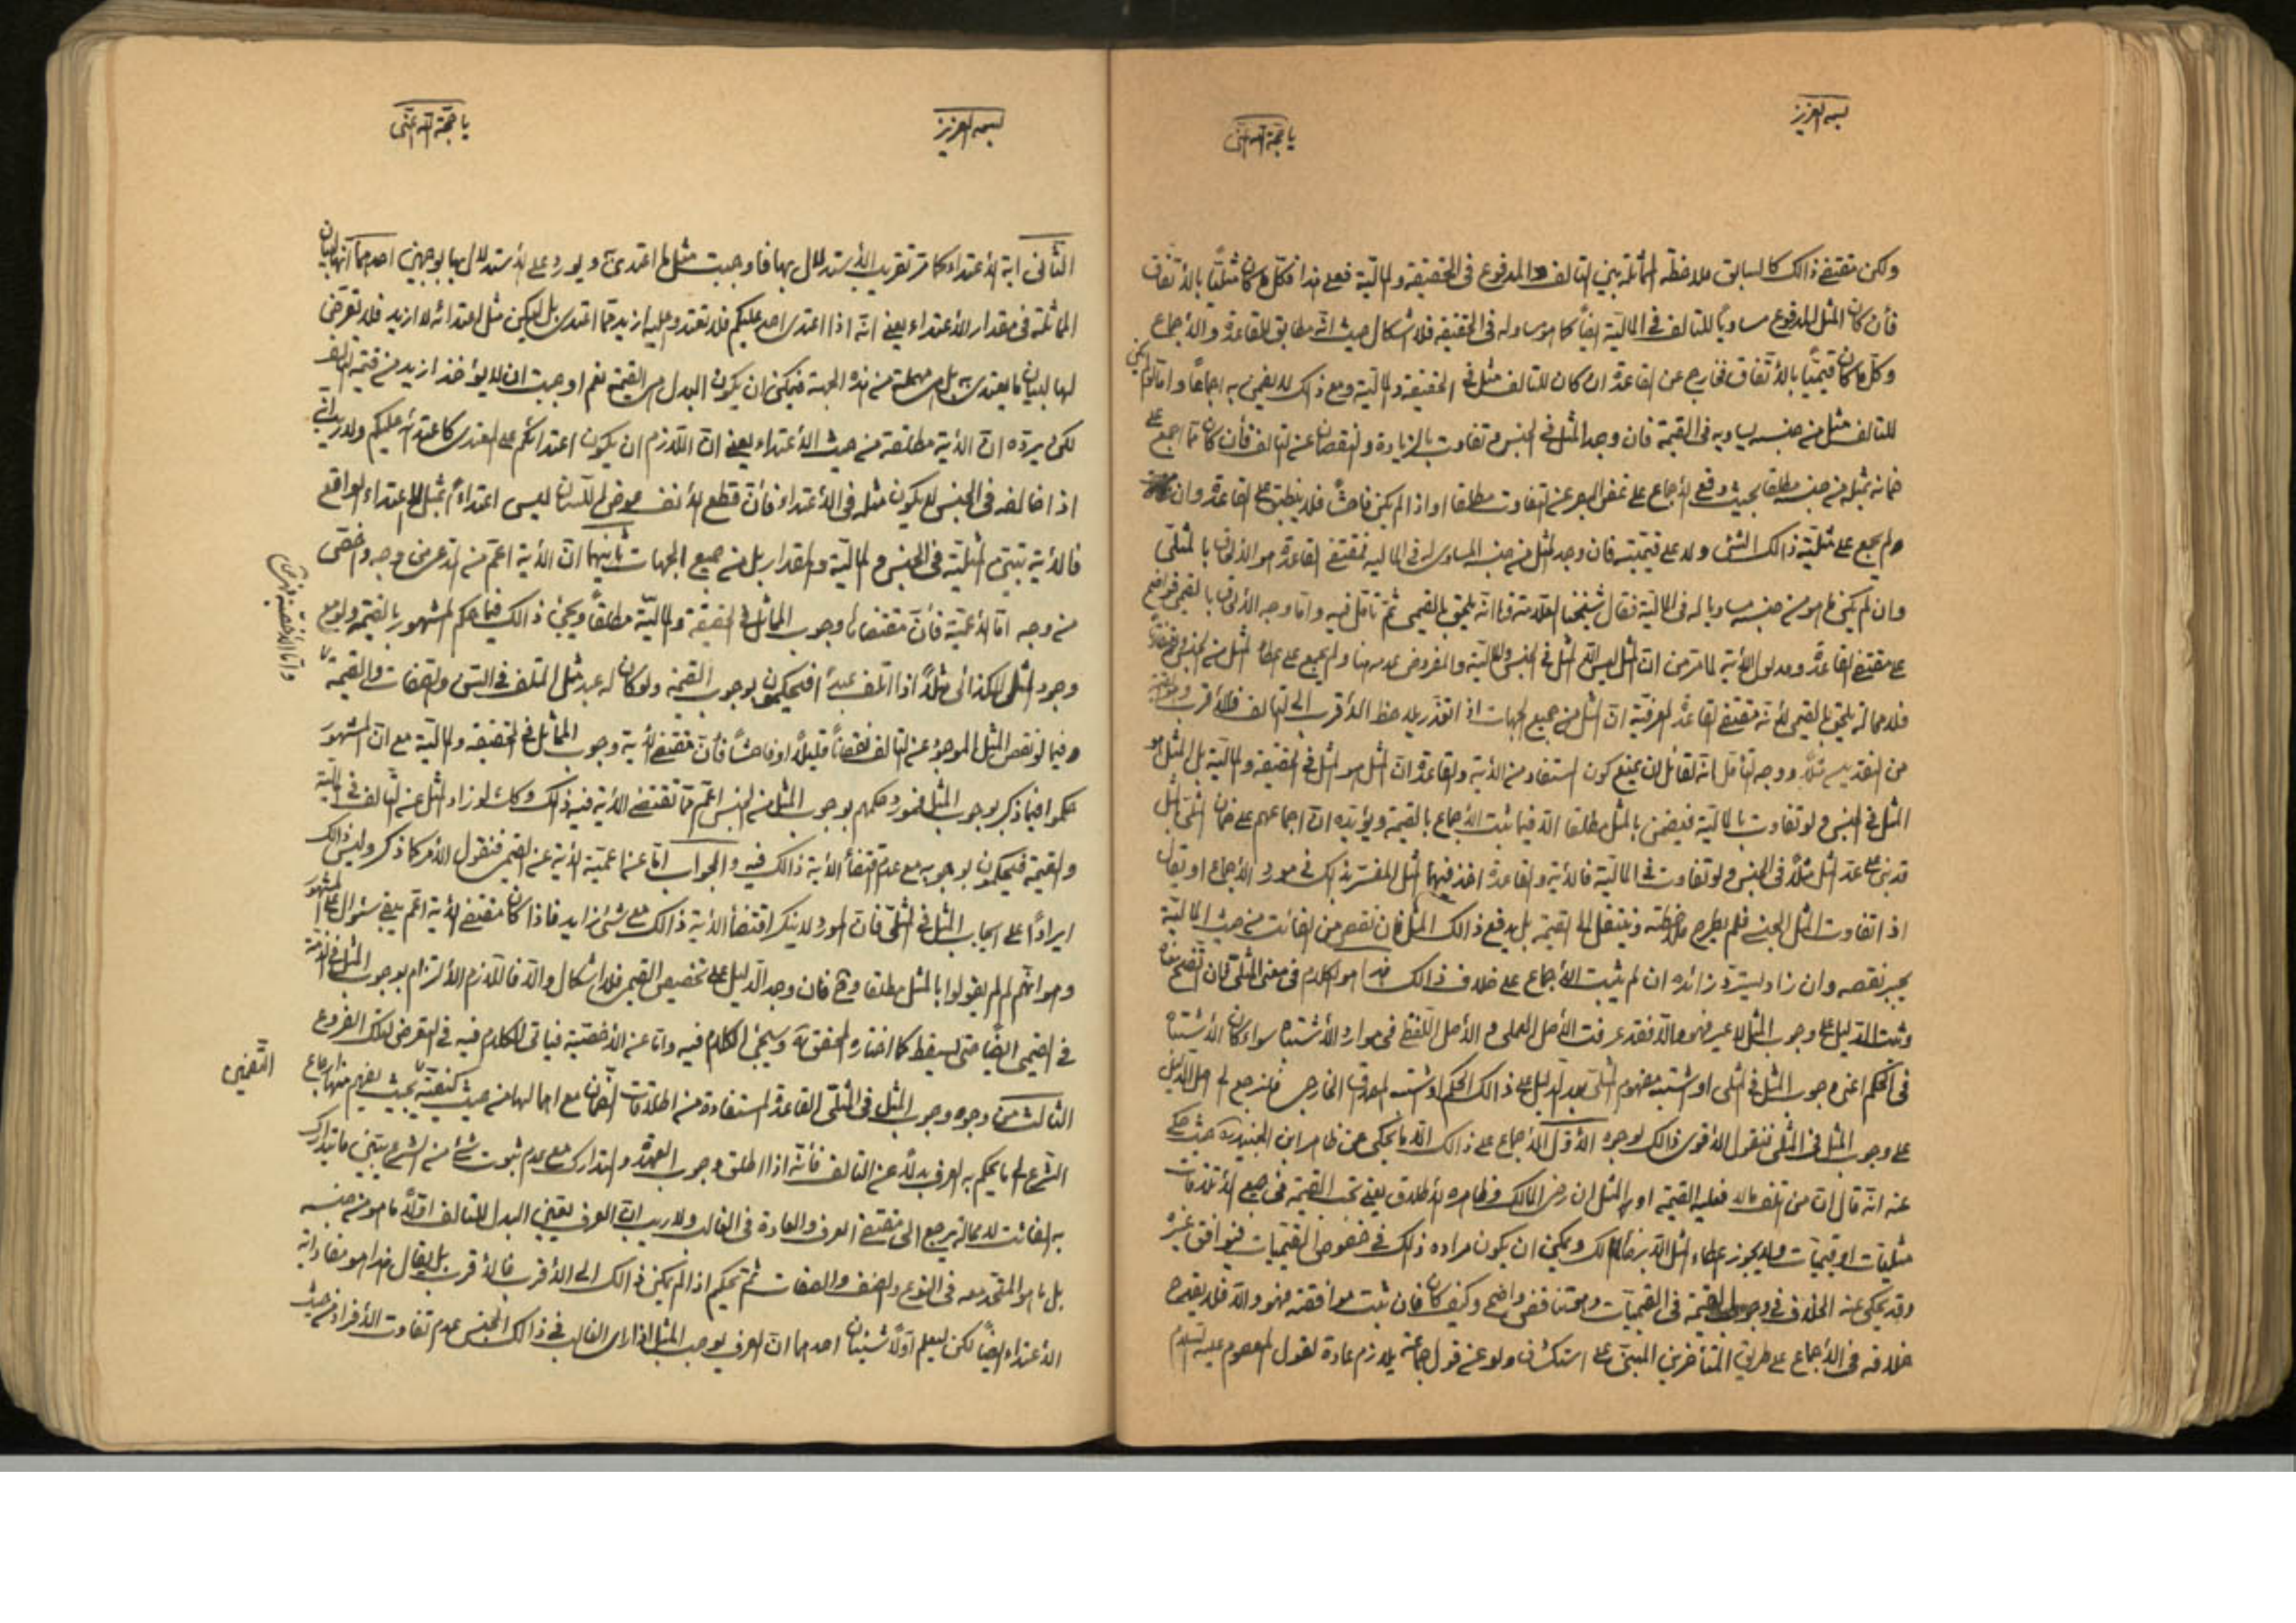 بسمه العزيز
يا حجة الله اغثنى
ولكن مقتضى ذالك كالسابق ملاحظة المماثلة بين التالف والمدفوع فى الحقيقة والمالية فعلى هذا فكل ما كان مثليا بالأتفاق
فأن كان المثل المدفوع مساويا للتالف فى المالية ايضا كما هو مساو له فى الحقيقة فلا اشكال حيث انه مطابق للقاعدة والأجماع
وكل ما كان قيميا بالأتفاق فخارج عن القاعدة ان كان للتالف مثل فى الحقيقة والمالية ومع ذالك لا يضمن به اجماعا واما لو لم يكن
للتالف مثل من جنسه يساويه فى القيمة فان وجد المثل فى الجنس وتفاوت بالزيادة والنقصان عن التالف فأن كان مما اجمع على
ضمانه بمثل من جنسه مطلقا بحيث وقع الأجماع على غض البصر عن التفاوت مطلقا او اذا لم يكن فاحشا فلا ينطبق على القاعدة وان
ولم يجمع على مثلية ذالك الشئ ولا على قيميته فان وجد المثل من جنسه المساوى له فى المالية فمقتضى القاعدة هو الألحاق بالمثلى
وان لم يكن ما هو من جنسه مساويا له فى المالية فقال شيخنا العلامة انه يلحق بالقيمى ثم تأمل فيه واما وجه الألحاق بالقيمى فواضح
على مقتضى القاعدة ومدلول الأية لما مر من ان المثل ليس الا المثل فى الجنس والمالية والمفروض عدمه هنا ولم يجمع على اعطاء المثل من الجنس
فلا محالة يلحق بالقيمى لأنه مقتضى القاعدة العرفية ان المثل من جميع الجهات اذا تعذر يلاحظ الأقرب الى التالف فالأقرب
من النقدين مثلا ووجه التأمل انه لقائل ان يمنع كون المستفاد من الأية والقاعدة ان المثل هو المثل فى الحقيقة والمالية بل المثل هو
المثل فى الجنس ولو تفاوت بالمالية فيضمن بالمثل مطلقا الا فيما ثبت الأجماع بالقيمة ويؤيده ان اجماعهم على ضمان المثلى بالمثل
قد بنى على عد المثل مثلا فى الجنس ولو تفاوت فى المالية فالأية والقاعدة اخذ فيهما المثل المفسر بذالك فى مورد الأجماع او يقال
اذا تفاوت المثل الجنسى فلم يطرح ملاحظته وينتقل الى القيمة بل يدفع ذالك المثل فان نقص من الفائت من حيث المالية
يجبر نقصه وان زاد ليسترد زائده ان لم يثبت الأجماع على خلاف ذالك هذا هو الكلام فى معنى المثلى فان
وثبت الدليل على وجوب المثل لا غير فهو والا فقد عرفت الأصل العملى والأصل اللفظى فى موارد الأشتباه سواء كان الأشتباه
فى الحكم اعنى وجوب المثل فى المثلى او اشتبه مفهوم المثلى بعد الدليل على ذالك الحكم او اشتبه المصداق الخارجى فلنرجع الى اصل الدليل
على وجوب المثل فى المثلى فنقول الأقوى ذالك لوجوه الأول الأجماع على ذالك الا ما يحكى عن ظاهر ابن الجنيد حيث حكى
عنه انه قال ان من تلف ماله فعليه القيمة او المثل ان رضى المالك وظاهره الأطلاق يعنى تحت القيمة فى جميع الأتلافات
مثليات او قيميات ولا يجوز اعطاء المثل الا برضا المالك ويمكن ان يكون مراده ذالك فى خصوص القيميات فيوافق غيره
وقد يحكى عنه الخلاف فى وجوب القيمة فى القيميات وهو تناقض واضح وكيف كان فان ثبت موافقته فهو والا فلا يقدح
خلافه فى الأجماع على طريق المتأخرين المبنى على استكشاف ولو عن قول جماعة يلازم عادة لقول المعصوم عليه السلام
بسمه العزيز
يا حجة الله اغثنى
الثانى اية الأعتداء كما مر تقريب الأستدلال بها فاوجبت مثل ما اعتدى ويورد على الأستدلال بها بوجهين احدهما انها لبيان
المماثلة فى مقدار الأعتداء يعنى انه اذا اعتدى احد عليكم فلا تعتدوا عليه ازيد مما اعتدى بل ليكن مثل اعتدائه لا ازيد فلا تعرض
لها لبيان ما يعتدى به بل هى مهملة من هذه الجهة فيمكن ان يكون البدل هى القيمة نعم اوجبت ان لا يؤخذ ازيد من قيمة التالف
لكن يرده ان الأية مطلقة من حيث الأعتداء يعنى ان اللازم ان يكون اعتدائكم على المعتدى كاعتدائه عليكم ولا ريب انه
اذا خالفه فى الجنس لا يكون مثله فى الأعتداء فأن قطع الأنف عوض اللسان ليس اعتداء بمثل الأعتداء الواقع
فالأية تبين المثلية فى الجنس والمالية والمقدار بل من جميع الجهات ثانيهما ان الأية اعم من المدعى من وجه واخص
من وجه اما الأعمية فأن مقتضاها وجوب المماثل فى الحقيقة والمالية مطلقا ويجئ ذالك فيما حكم المشهور بالقيمة ولو مع
وجود المثل الكذائى مثلا اذا اتلف عبدا فيحكمون بوجوب القيمة ولو كان له عبد مثل التالف فى السن والصفات والقيمة
وفيما لو نقص المثل الموجود عن التالف نقصانا قليلا او فاحشا فأن مقتضى الأية وجوب المماثل فى الحقيقة والمالية مع ان المشهور
حكموا فيما ذكر بوجوب المثل فمورد حكمهم بوجوب المثل من الجنس اعم مما تقتضى الأية فيه ذالك وكذا لو زاد المثل عن التالف فى المالية
والقيمة فيحكمون بوجوبه مع عدم اقتضاء الأية ذالك فيه والجواب اما عن اعمية الأية عن القيمى فنقول الأمر كما ذكر وليس ذالك
ايرادا على ايجاب المثل فى المثلى فان المورد لا ينكر اقتضاء الأية ذالك مع شئ زايد فاذا كان مقتضى الأية اعم يبقى سئوال على المشهور
وهو انهم لم لم يقولوا بالمثل مطلقا وح فان وجد الدليل على تخصيص القيمى فلا اشكال والا فاللازم الألتزام بوجوب المثل فى الذمة
فى القيمى ايضا حتى يسقط كما اختاره المحقق وسيجئ الكلام فيه واما عن الأخصية فياتى الكلام فيه فى التعرض لتلك الفروع
الثالث من وجوه وجوب المثل فى المثلى القاعدة المستفادة من اطلاقات الضمان مع اجمالها من حيث كيفيته بحيث يفهم منها ارجاع
الشرع الى ما يحكم به العرف بدلا عن التالف فأنه اذا اطلق وجوب العهدة والتدارك مع عدم ثبوت شئ من الشرع يبين ما يتدارك
به الفائت لا محالة يرجع الى مقتضى العرف والعادة فى الغالب ولا ريب ان العرف يعين البدل للتالف اولا ما هو من جنسه
بل ما هو المتحد معه فى النوع والصنف والصفات ثم يحكم اذا لم يكن ذالك الى الأقرب فالأقرب بل يقال هذا هو مفاد اية
الأعتداء ايضا لكن ليعلم اولا شيئان احدهما ان العرف يوجب المثل اذا راى الغالب فى ذالك الجنس عدم تفاوت الأفراد من حيث
واما الأخصية
التضمين